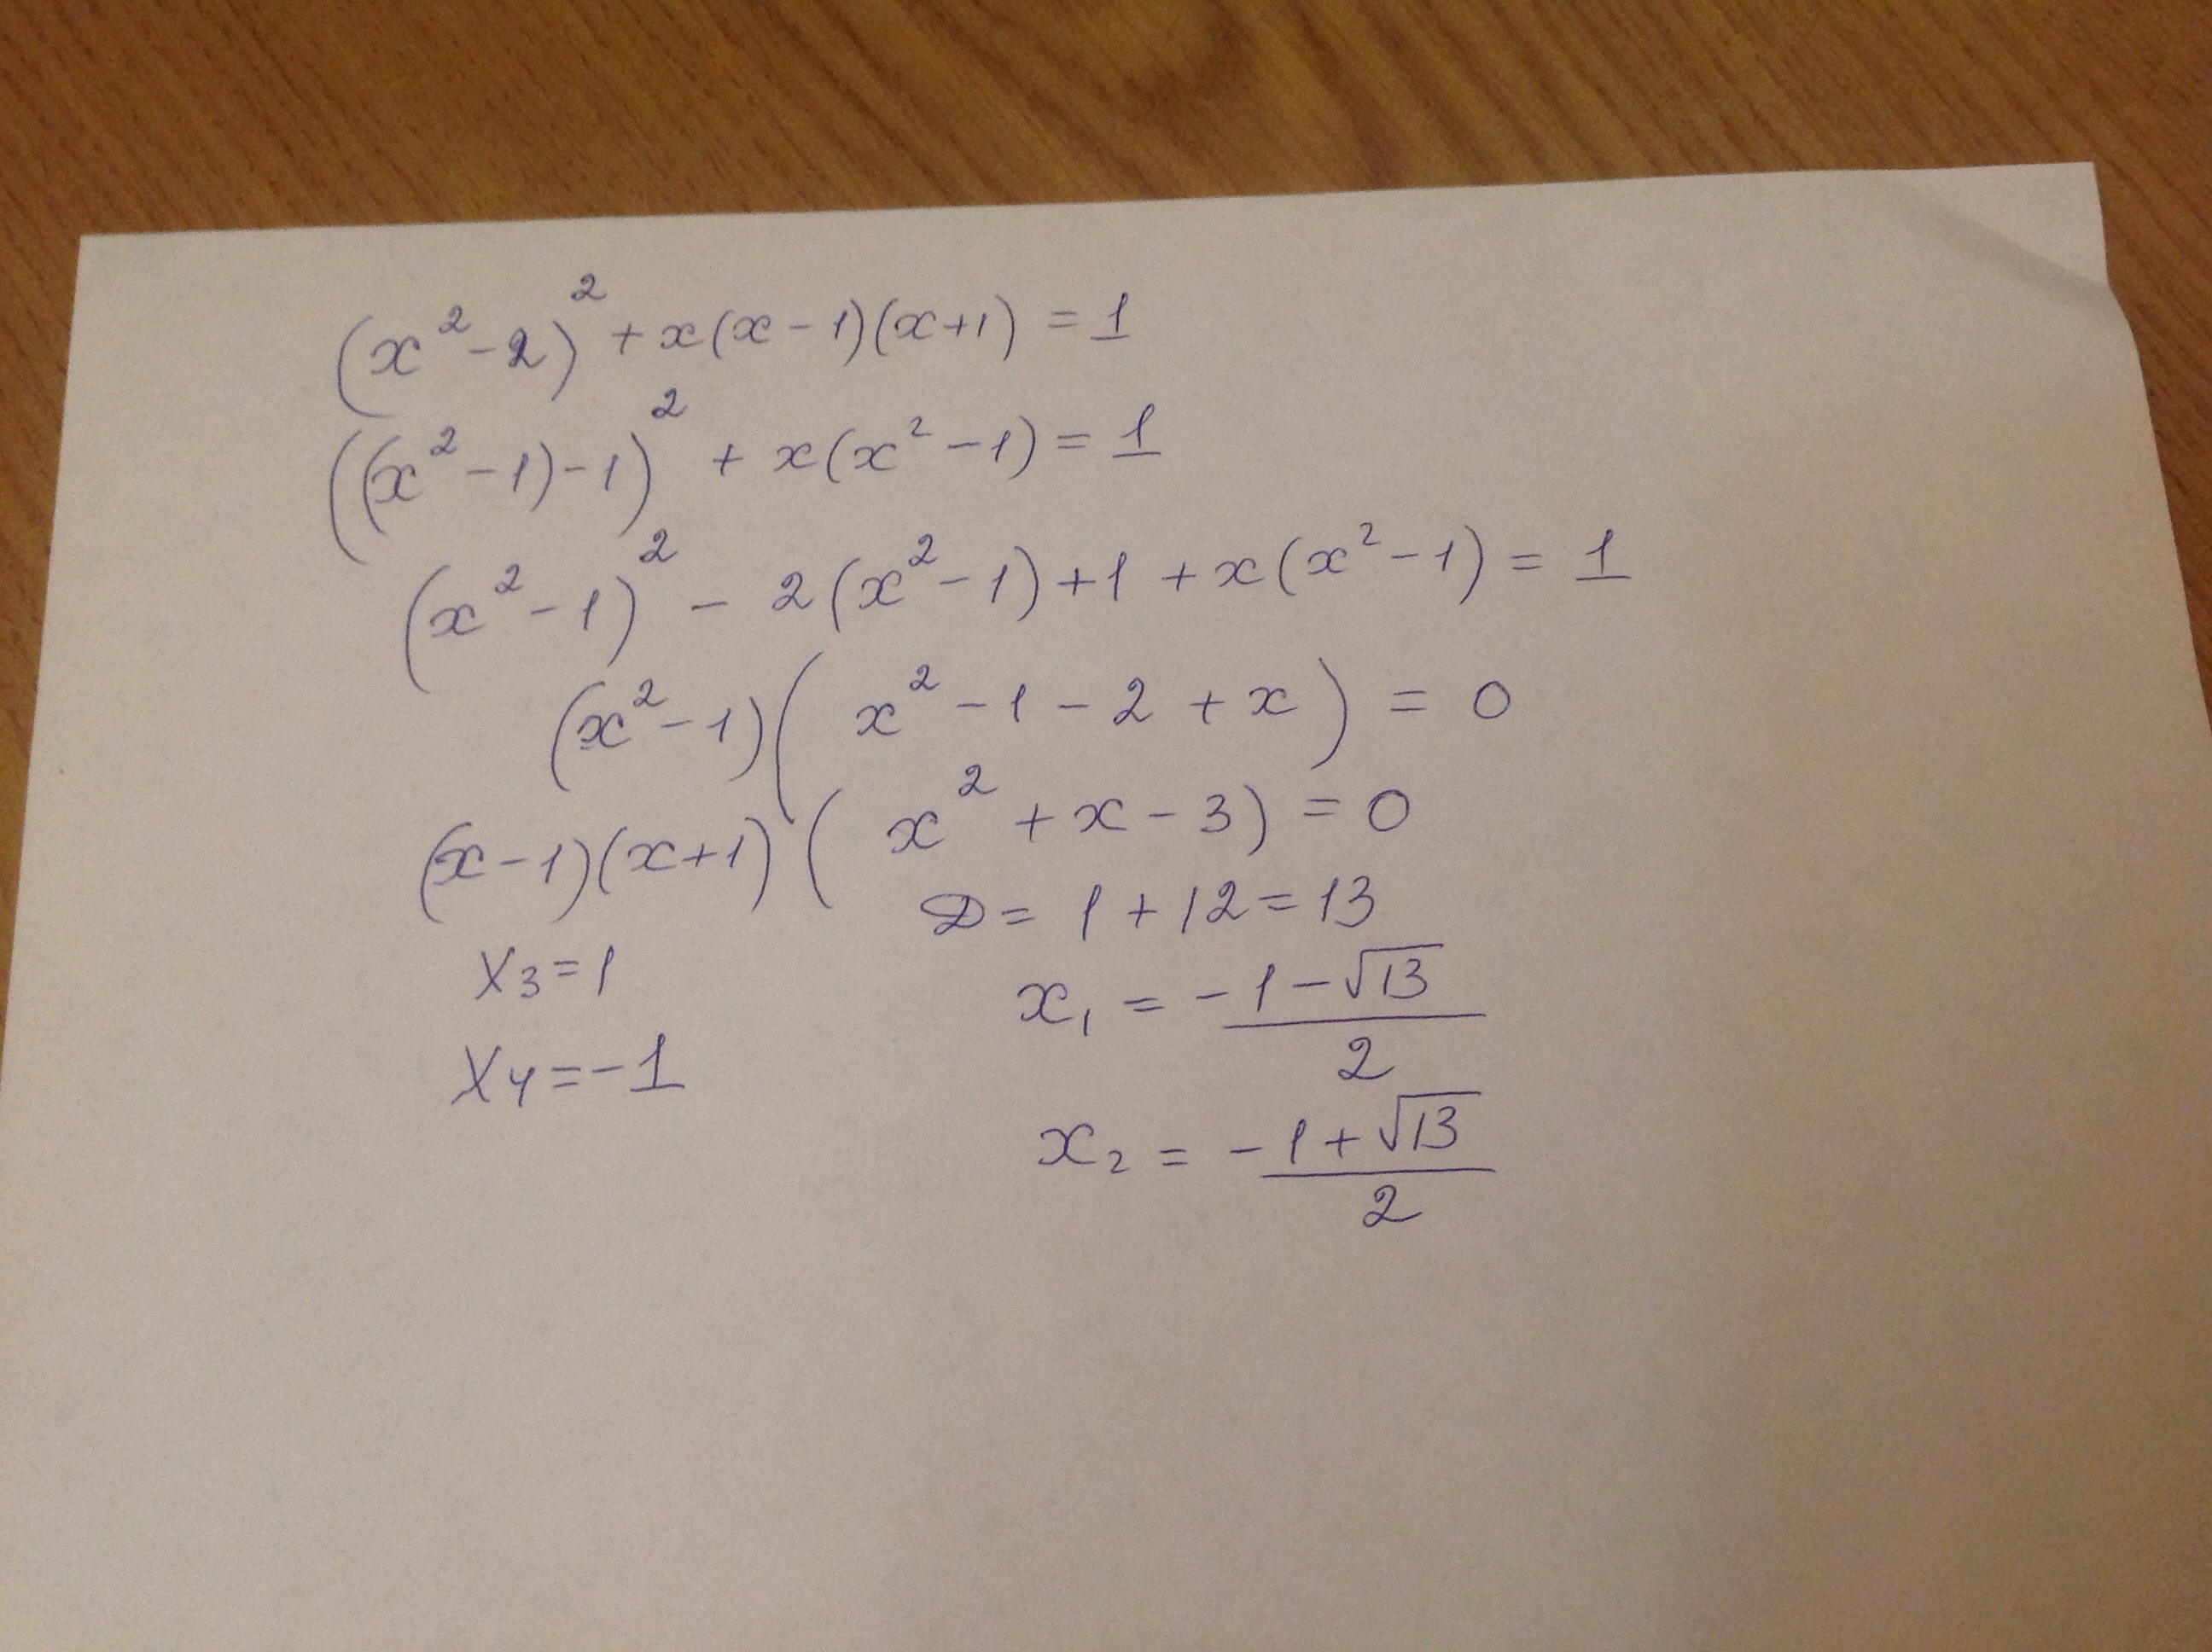 (x² - 2)² + x(x - 1)(x + 1) = 1
((x² - 1) - 1)² + x(x² - 1) = 1
(x² - 1)² - 2(x² - 1) + 1 + x(x² - 1) = 1
(x² - 1)(x² - 1 - 2 + x) = 0
(x - 1)(x + 1)(x² + x - 3) = 0
D = 1 + 12 = 13
x₃ = 1
x₁ = (-1 - √13)/2
x₄ = -1
x₂ = (-1 + √13)/2